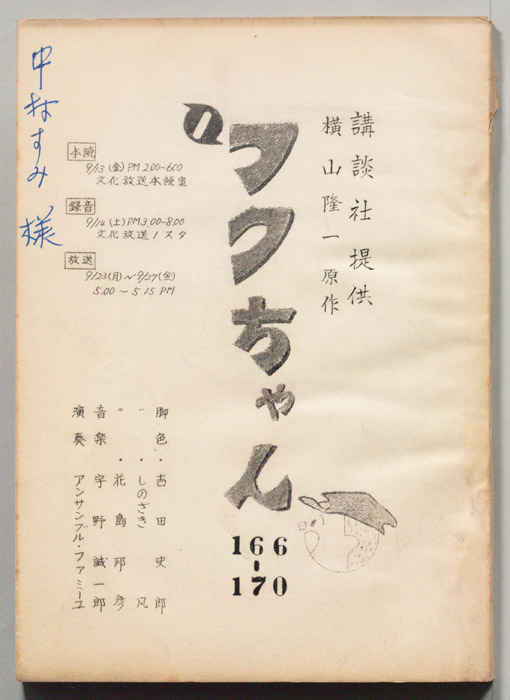 講談社提供
横山隆一原作
フクちゃん
166
-
170
中村すみ様
本読
9/13(金)PM2.00~6.00
文化放送本読室
録音
9/14(土)PM3.00~8.00
文化放送1スタ
放送
9/23(月)~9/27(金)
5.00~5.15PM
脚色・吉田史郎
〃・しのざき凡
〃・花島邦彦
音楽 宇野誠一郎
演奏 アンサンブル・ファミーユ